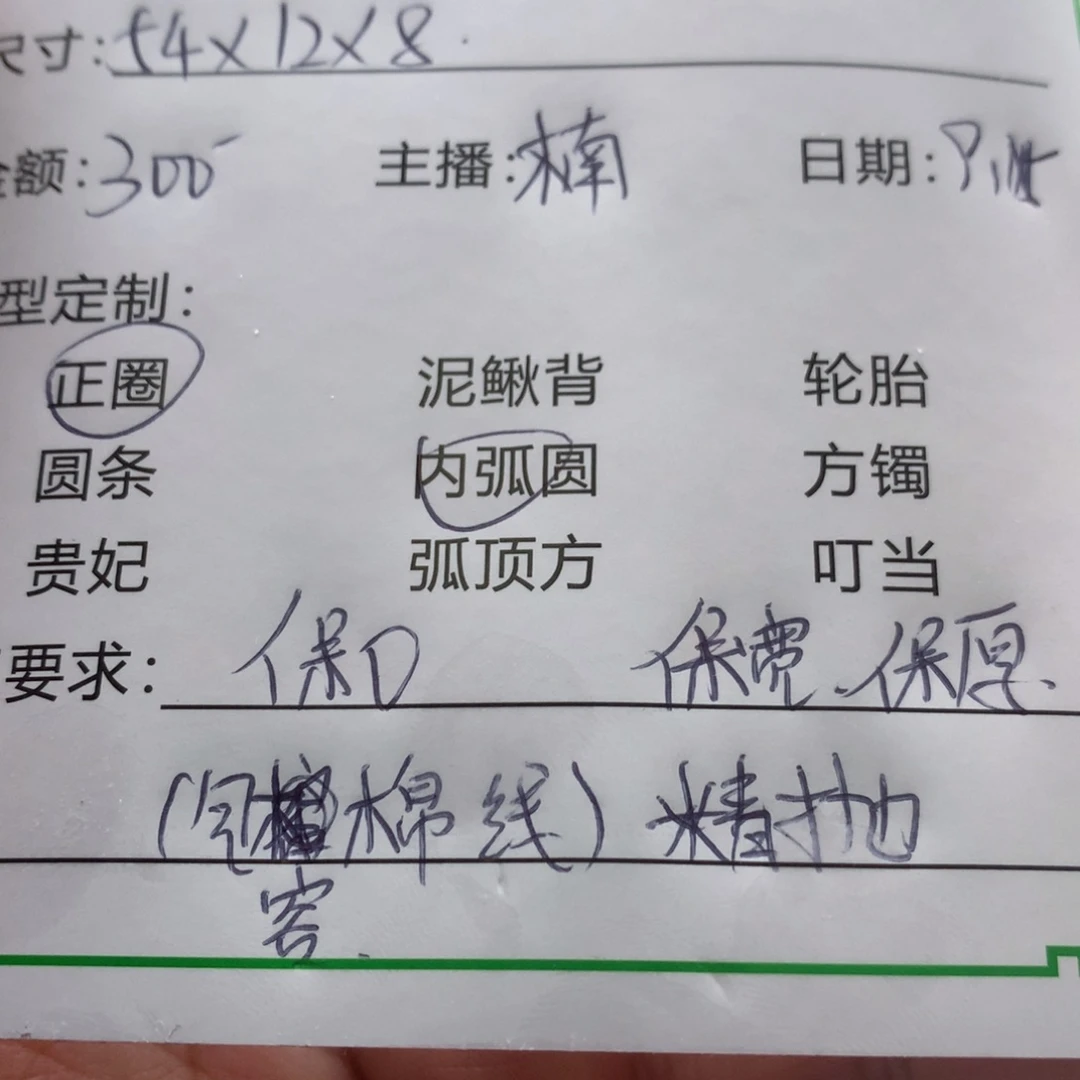 尺寸:54×12×8
金额:300 主播:楠 日期:
型定制:
正圈 泥鳅背 轮胎
圆条 内弧圆 方镯
贵妃 弧顶方 叮当
要求: 保口 保宽、保厚、
棉线)精抛
容